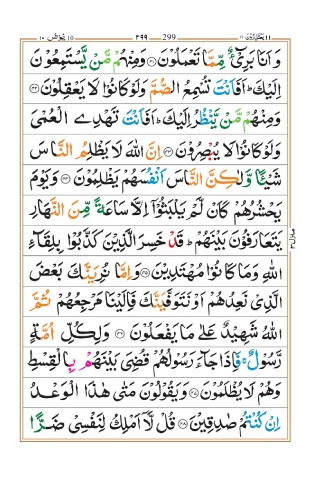 یعتذرون ۱۱ ۲۹۹ 299 یونس ۱۰
وَ اَنَا بَرِیْٓءٌ مِّمَّا تَعْمَلُوْنَ ﴿۴۱﴾ وَمِنْهُمْ مَّنْ یَّسْتَمِعُوْنَ
اِلَیْكَ ؕ اَفَاَنْتَ تُسْمِعُ الصُّمَّ وَلَوْ كَانُوْا لَا یَعْقِلُوْنَ ﴿۴۲﴾
وَمِنْهُمْ مَّنْ یَّنْظُرُ اِلَیْكَ ؕ اَفَاَنْتَ تَهْدِی الْعُمْیَ
وَلَوْ كَانُوْا لَا یُبْصِرُوْنَ ﴿۴۳﴾ اِنَّ اللّٰهَ لَا یَظْلِمُ النَّاسَ
شَیْـًٔا وَّلٰكِنَّ النَّاسَ اَنْفُسَهُمْ یَظْلِمُوْنَ ﴿۴۴﴾ وَیَوْمَ
یَحْشُرُهُمْ كَاَنْ لَّمْ یَلْبَثُوْۤا اِلَّا سَاعَةً مِّنَ النَّهَارِ
یَتَعَارَفُوْنَ بَیْنَهُمْ ؕ قَدْ خَسِرَ الَّذِیْنَ كَذَّبُوْا بِلِقَآءِ
اللّٰهِ وَمَا كَانُوْا مُهْتَدِیْنَ ﴿۴۵﴾ وَاِمَّا نُرِیَنَّكَ بَعْضَ
الَّذِیْ نَعِدُهُمْ اَوْ نَتَوَفَّیَنَّكَ فَاِلَیْنَا مَرْجِعُهُمْ ثُمَّ
اللّٰهُ شَهِیْدٌ عَلٰی مَا یَفْعَلُوْنَ ﴿۴۶﴾ وَلِكُلِّ اُمَّةٍ
رَّسُوْلٌ ۚ فَاِذَا جَآءَ رَسُوْلُهُمْ قُضِیَ بَیْنَهُمْ بِالْقِسْطِ
وَهُمْ لَا یُظْلَمُوْنَ ﴿۴۷﴾ وَیَقُوْلُوْنَ مَتٰی هٰذَا الْوَعْدُ
اِنْ كُنْتُمْ صٰدِقِیْنَ ﴿۴۸﴾ قُلْ لَّاۤ اَمْلِكُ لِنَفْسِیْ ضَرًّا